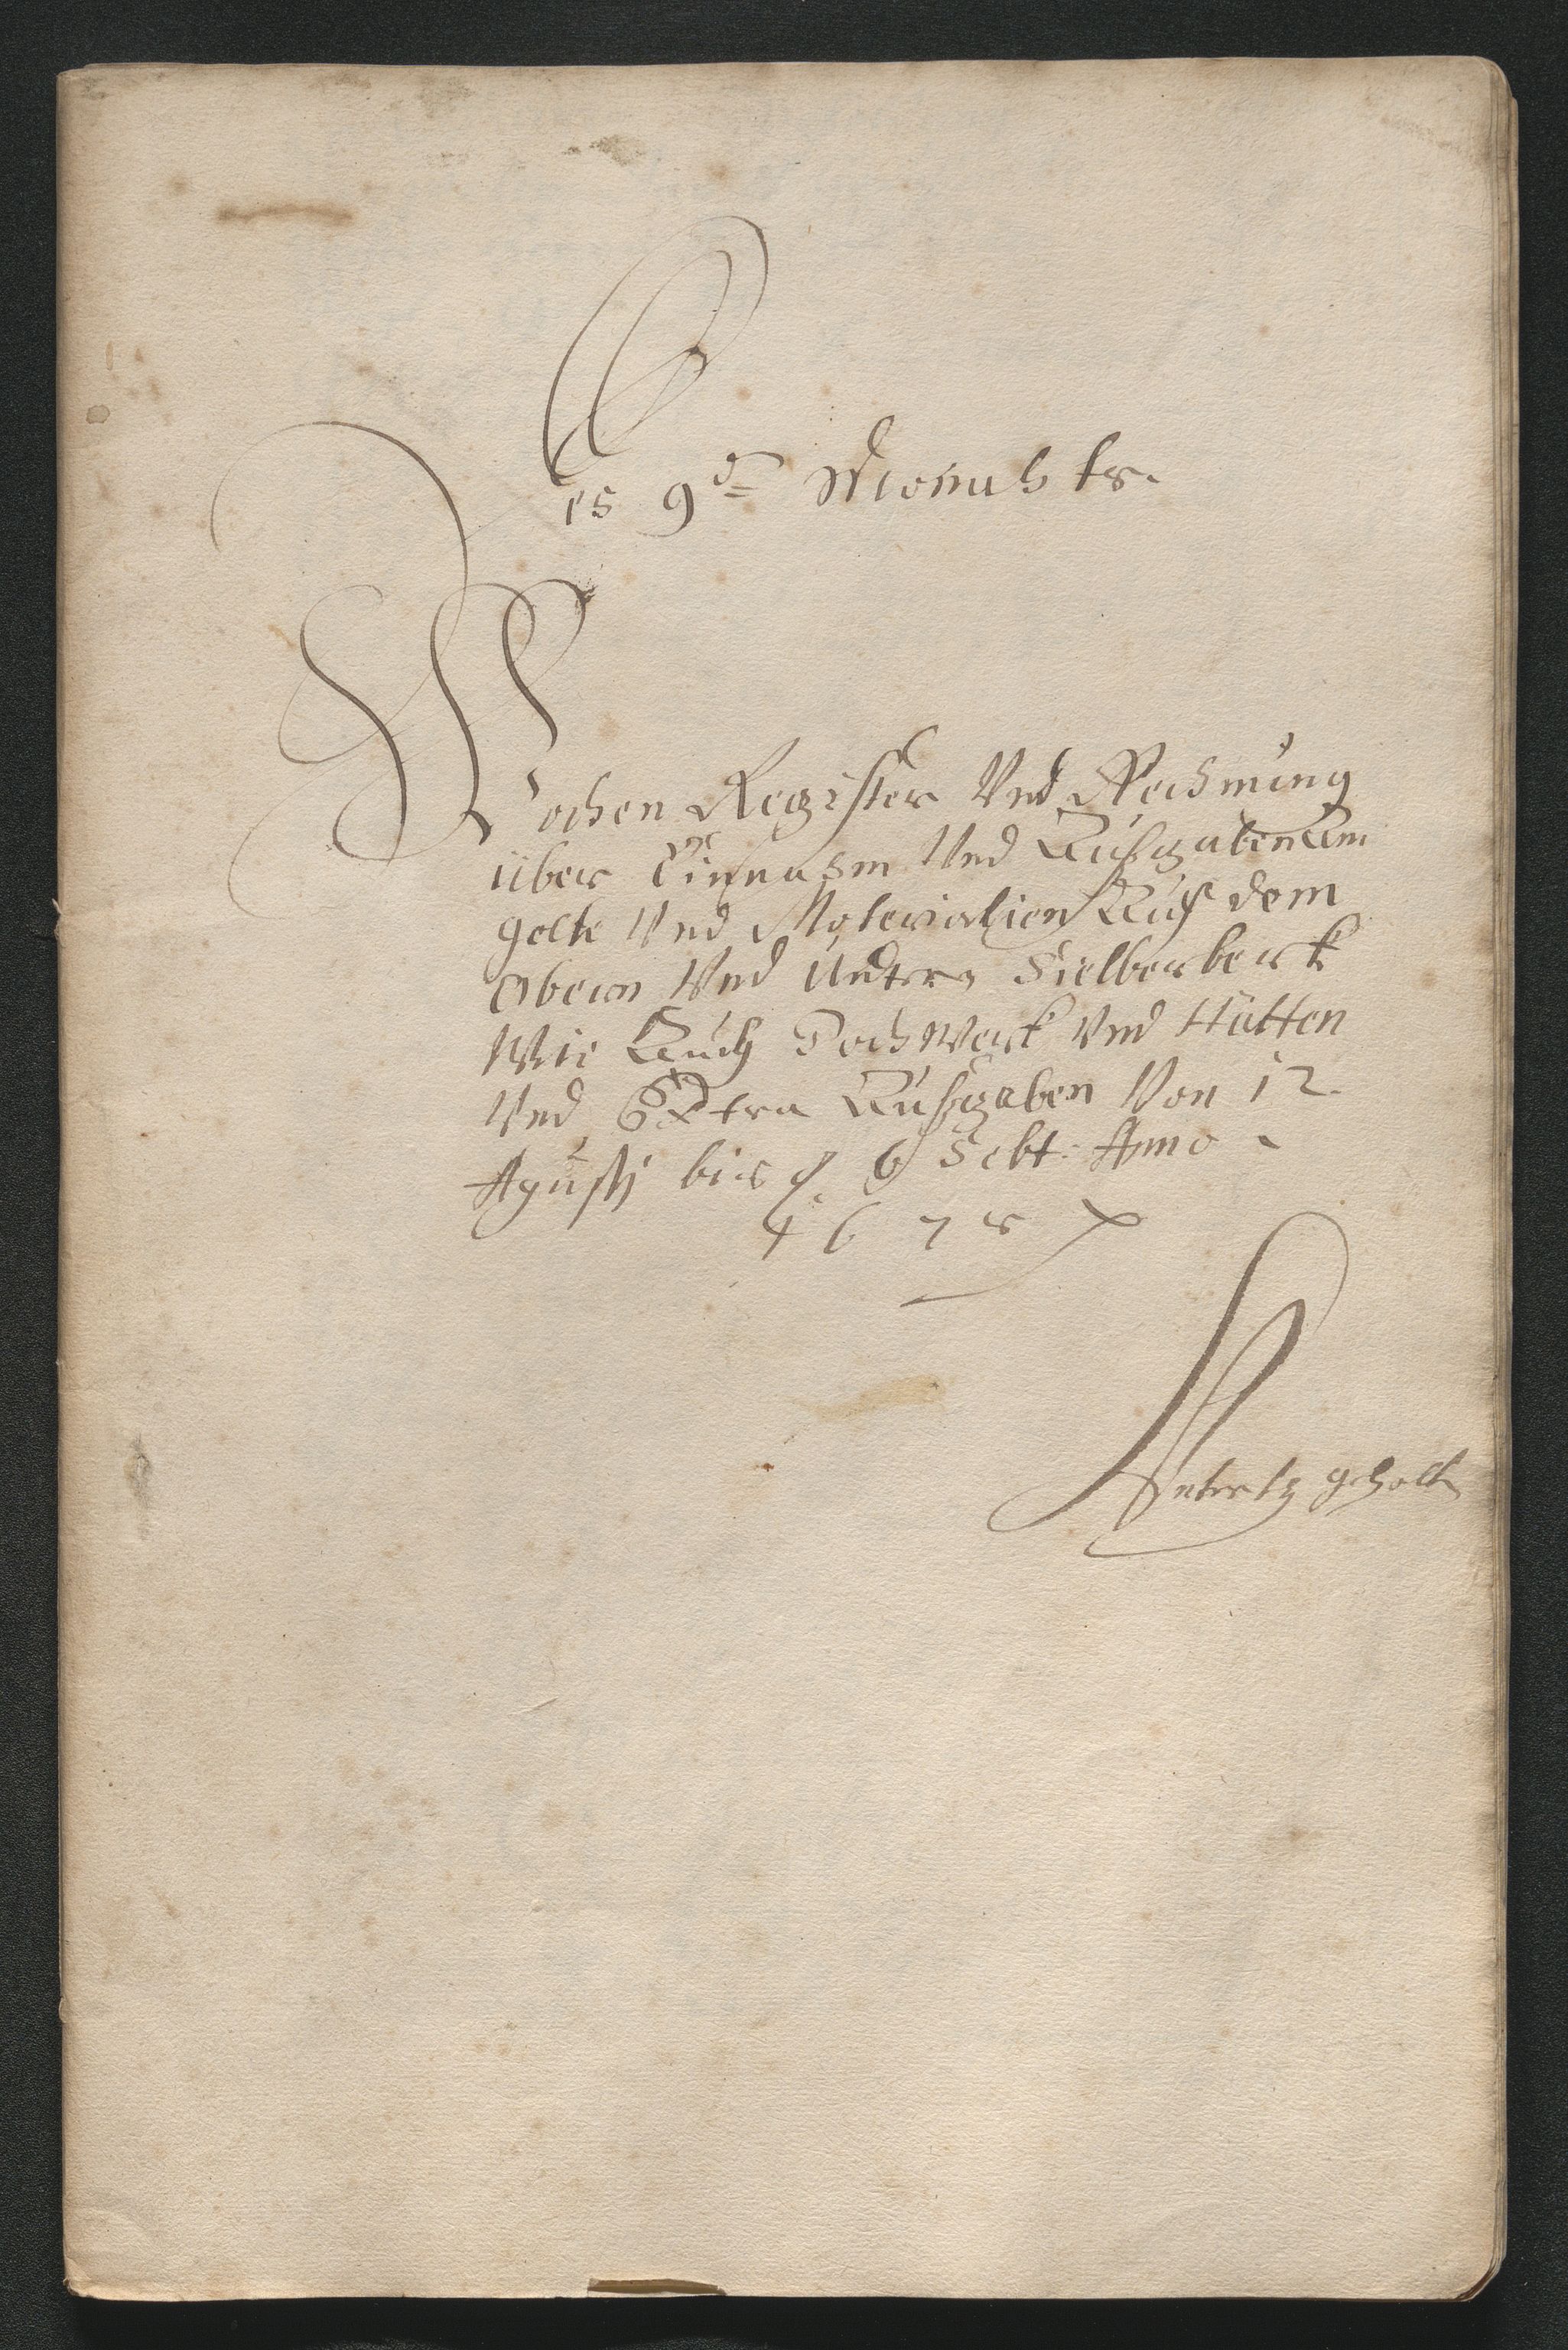 Des 9d= Monahts.
Wochen Register Vnd Rechnung
über Einnahm Vnd Außgaben am
gelte Vnd Materialien Auf dem
Obern Vnd Untern Sielberberk
Wie Auch Pochwerk Vnd Hütten
Vnd Extra Außgaben Von 12.
Agusti bis d. 6 Sebt: Anno
167